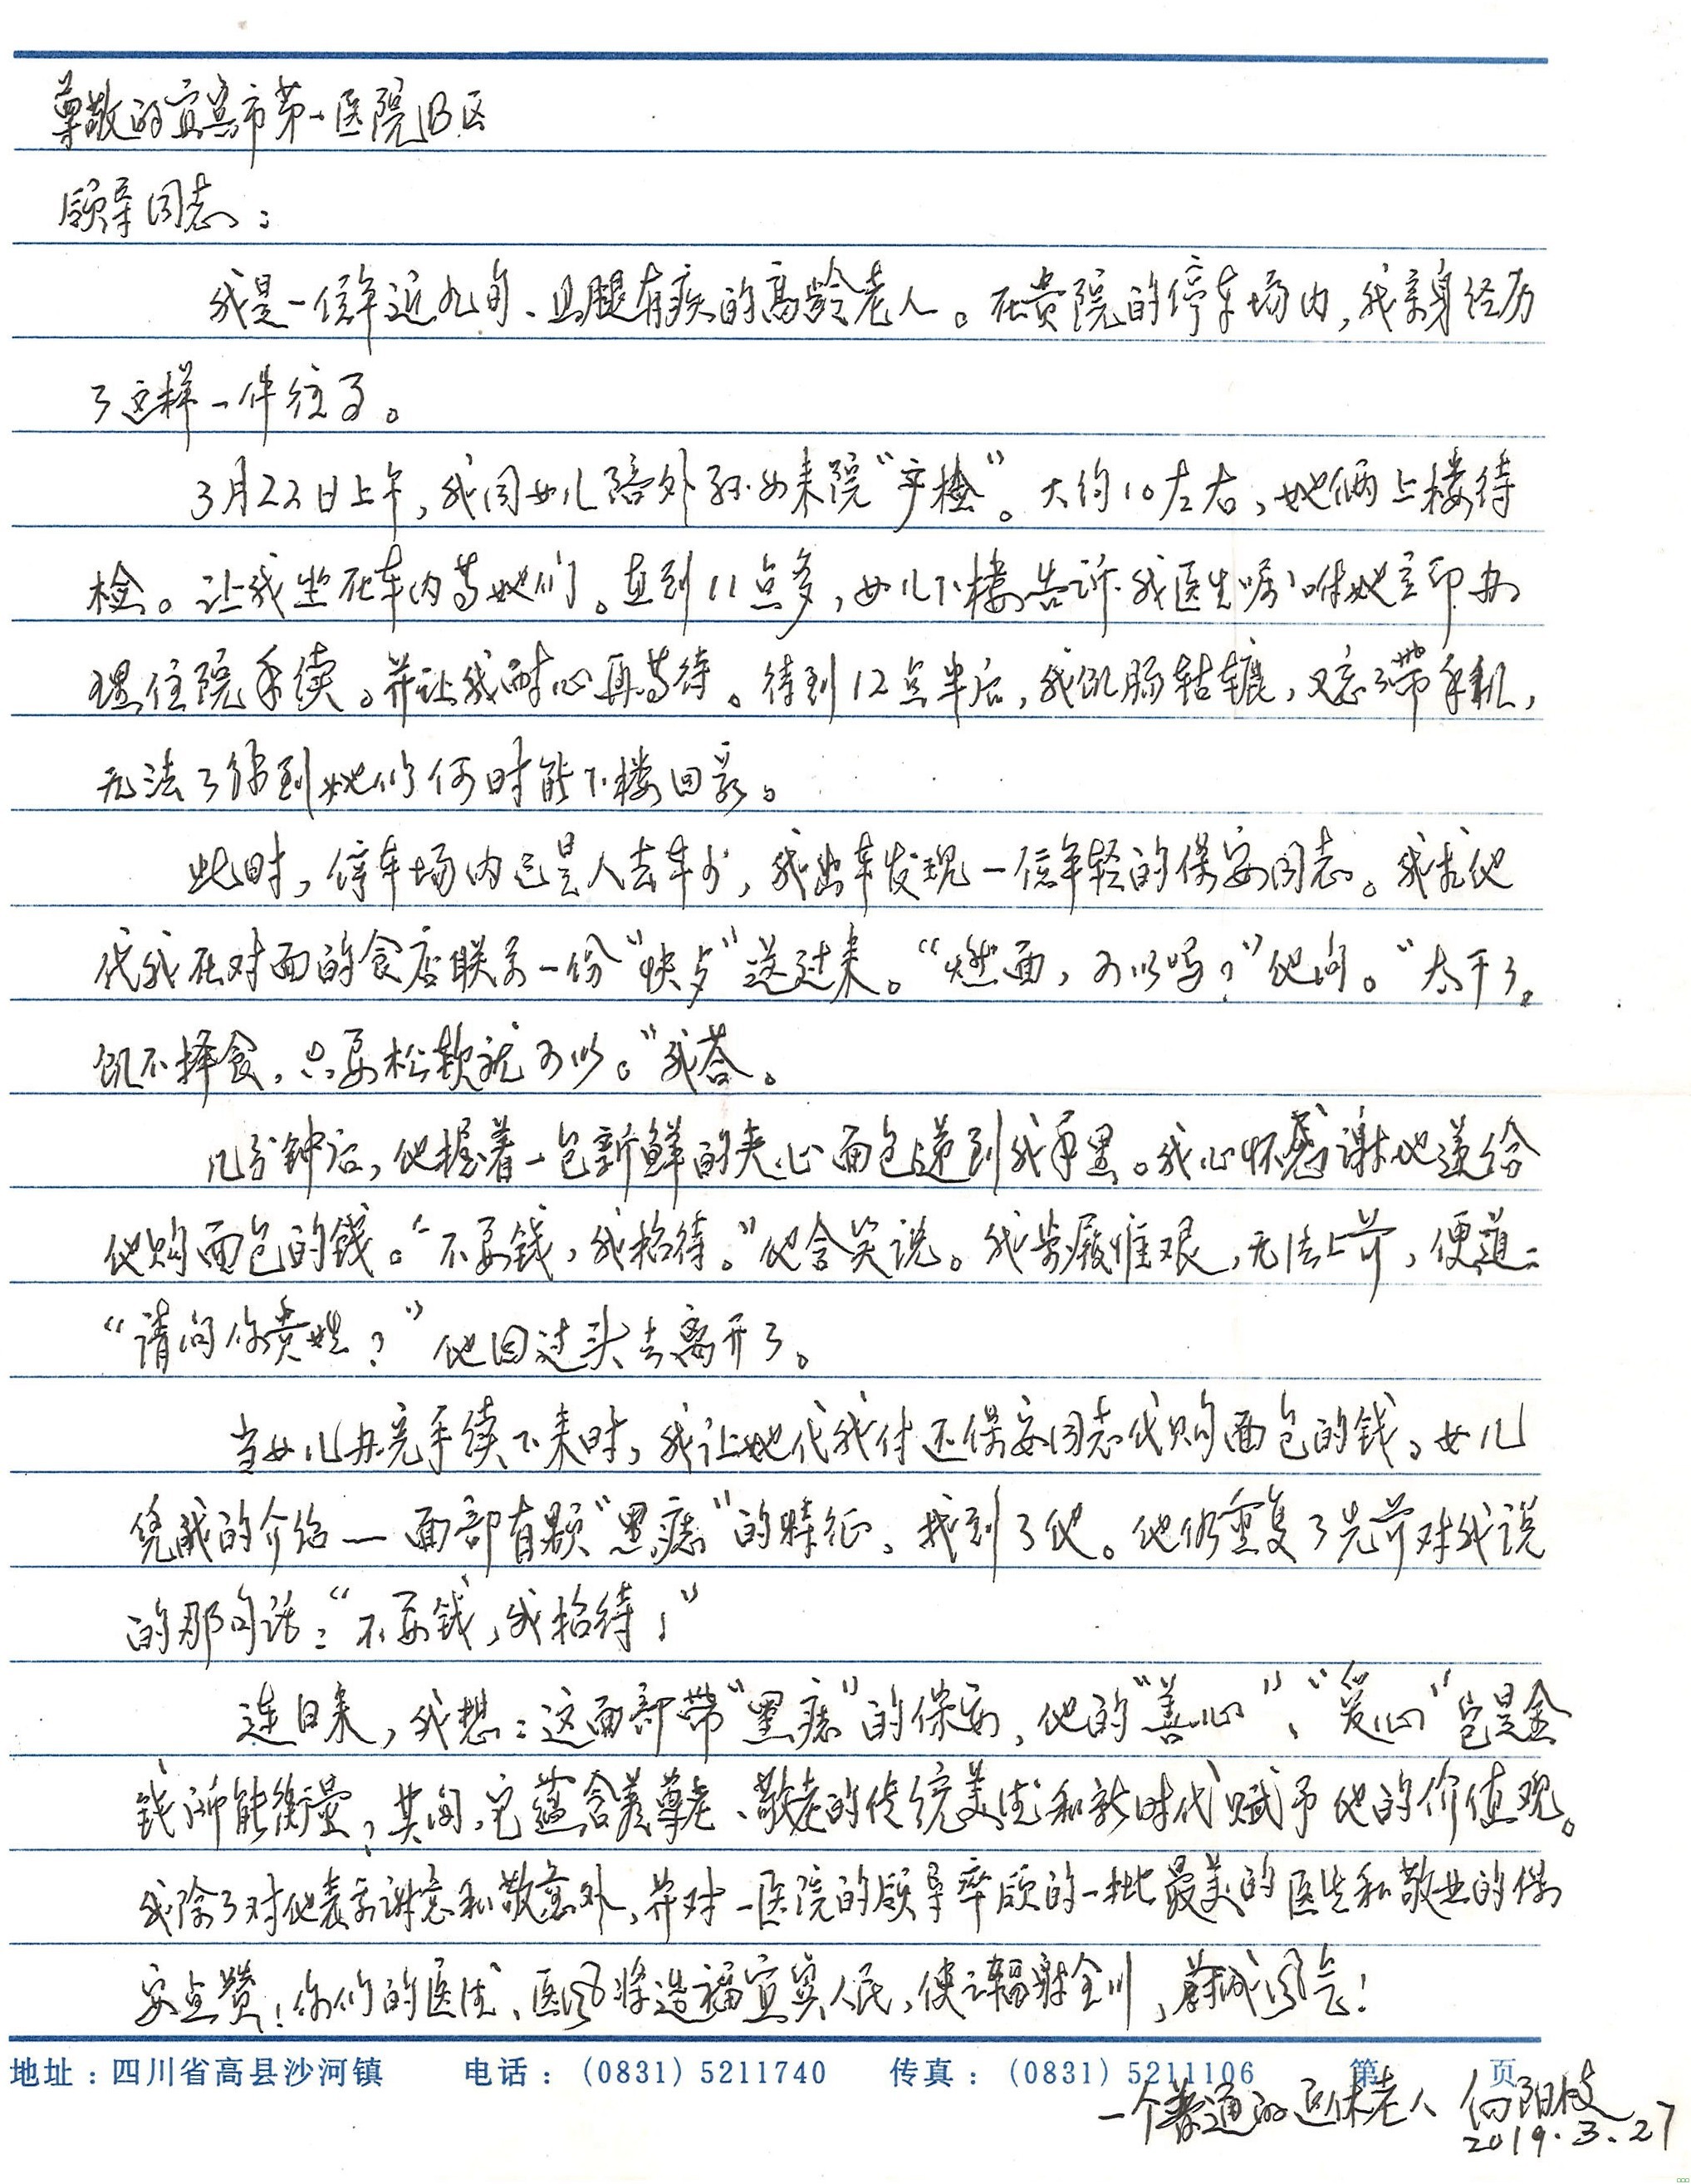 尊敬的宜宾市第一医院B区
领导同志：
我是一位年近九旬、且腿有疾的高龄老人。在贵院的停车场内，我亲身经历
了这样一件往事。
3月22日上午，我同女儿陪外孙女来院“产检”。大约10左右，她俩上楼待
检。让我坐在车内等她们。直到11点多，女儿下楼告诉我医生嘱咐她立即办
理住院手续。并让我耐心再等待。待到12点半后，我饥肠轱辘，又忘了带手机，
无法了解到她们何时能下楼回家。
此时，停车场内已是人去车少，我出车发现一位年轻的保安同志。我求他
代我在对面的食店联系一份“快点”送过来。“燃面，可以吗？”他问。“太干了。
饥不择食，只要松软就可以。”我答。
几分钟后，他握着一包新鲜的夹心面包递到我手里。我心怀感谢地送给
他购面包的钱。“不要钱，我招待。”他含笑说。我步履惟艰，无法上前，便道：
“请问你贵姓？”他回过头去离开了。
当女儿办完手续下来时，我让她代我付还保安同志代购面包的钱，女儿
凭我的介绍一面部有颗“黑痣”的特征，找到了他。他仍重复了先前对我说
的那句话：“不要钱，我招待！”
连日来，我想：这面部带“黑痣”的保安，他的“善心”、“爱心”岂是金
钱所能衡量，其间，它蕴含着尊老、敬老的传统美德和新时代赋予他的价值观。
我除了对他表示谢意和敬意外，并对一医院的领导率领的一批最美的医生和敬业的保
安点赞！你们的医德、医风将造福宜宾人民，使之辐射全川，蔚成风气！
地址：四川省高县沙河镇 电话：(0831) 5211740 传真：(0831) 5211106 第 页
一个普通的退休老人 向阳枝
2019.3.27